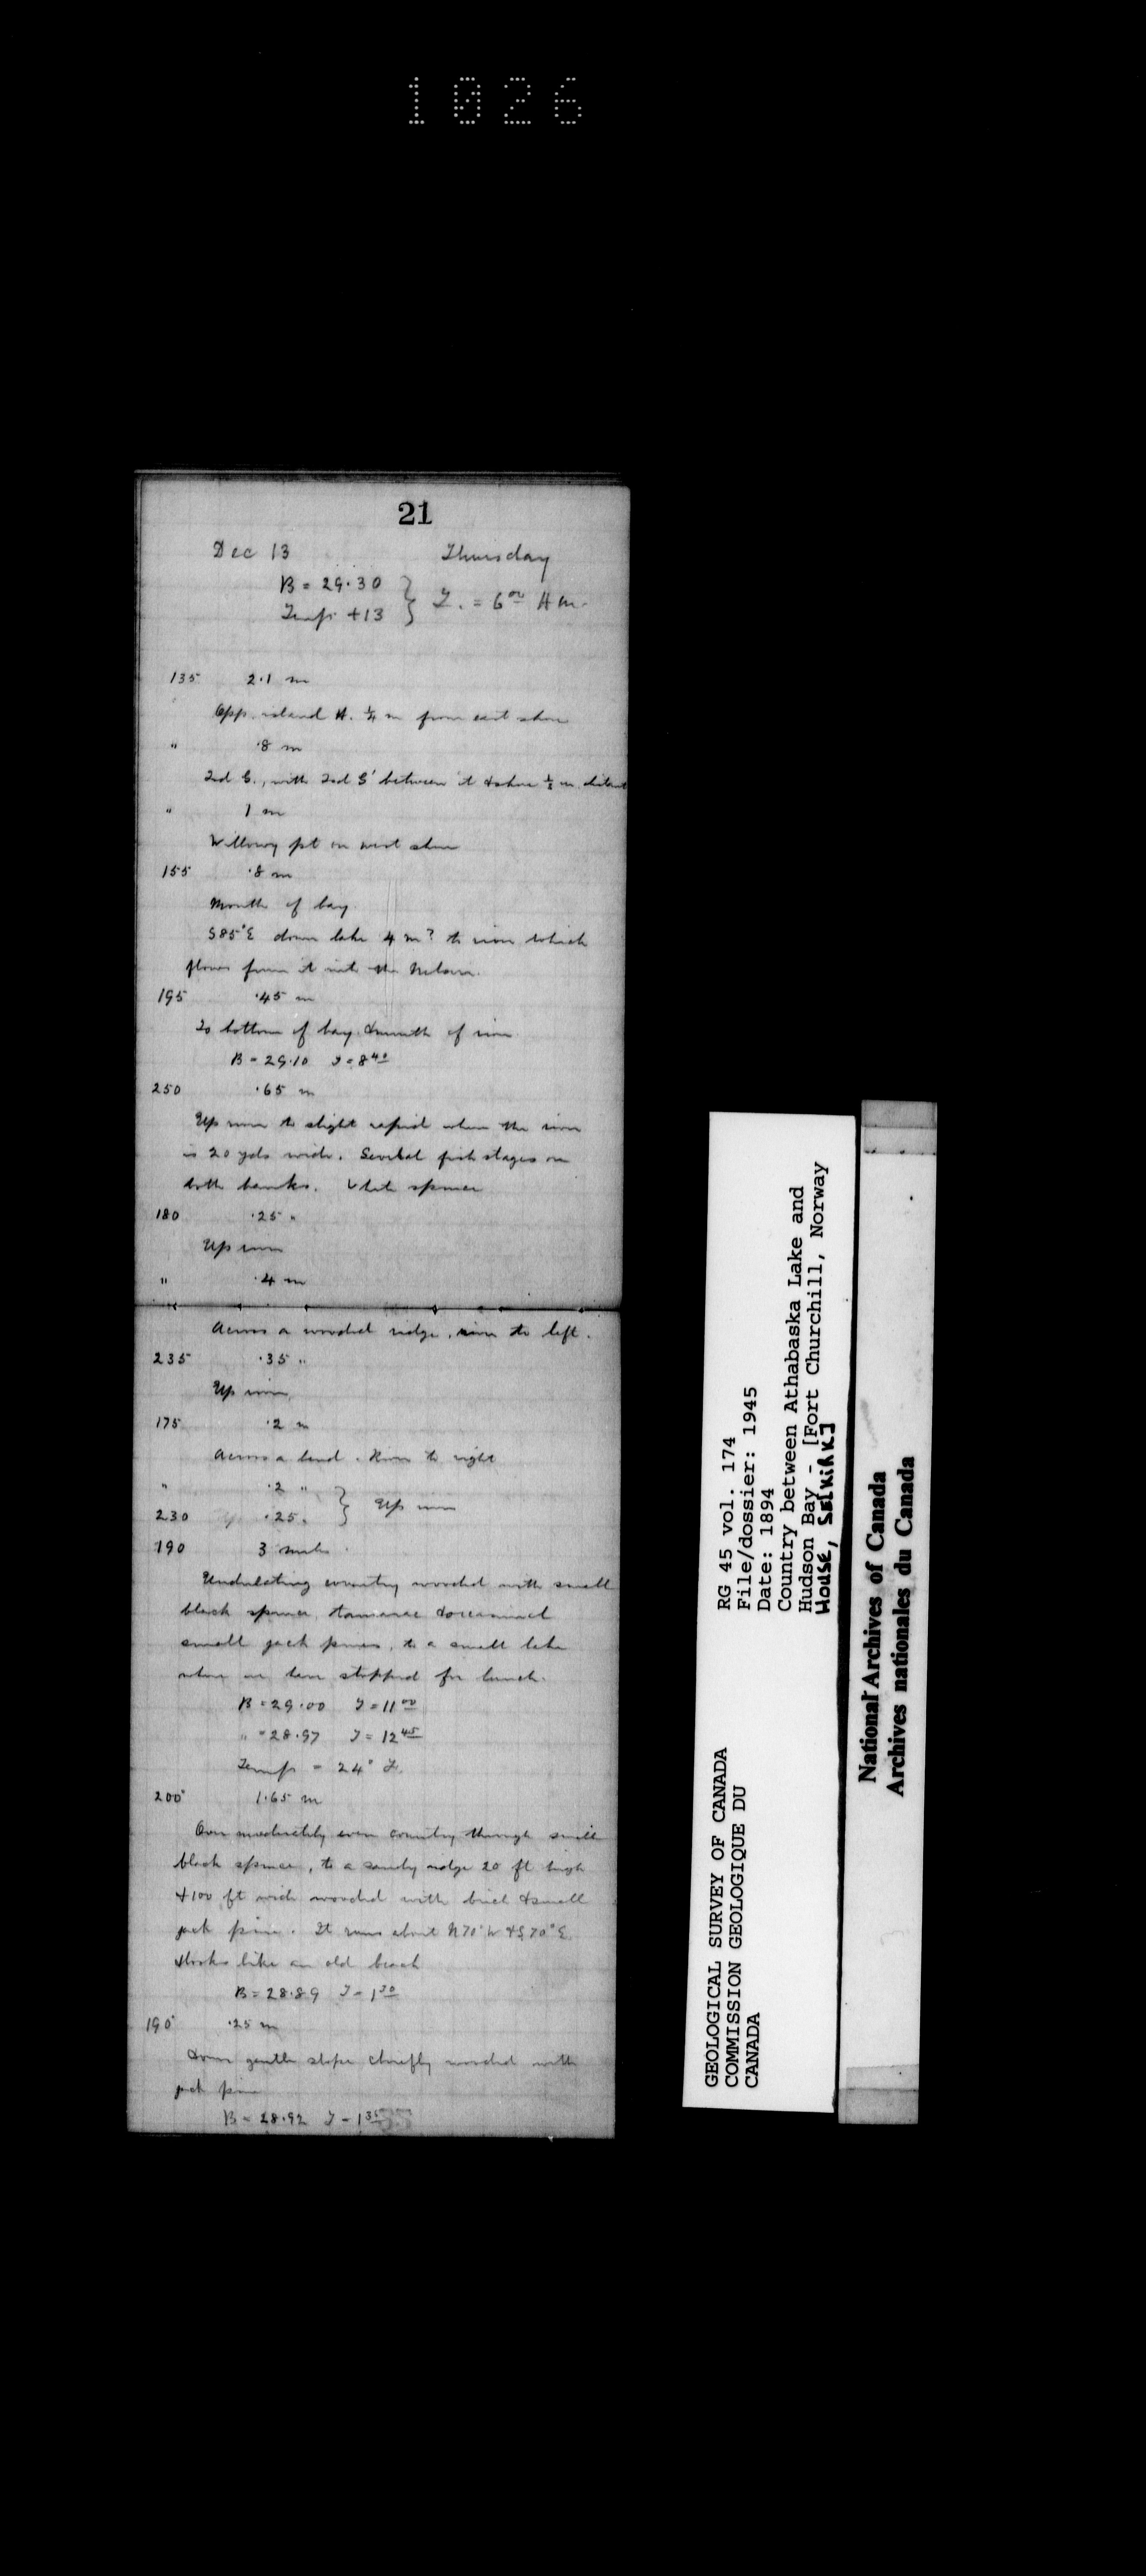 1026
21
Dec 13 Thursday
B = 29.30 } T. = 6 00 A m.
Temp +13
135 2.1 m
Opp. island A. ¼ m from east shore
" .8 m
Isd C., with Isd between it & shore m. distant
" 1 m
Willowy pt on west shore
155 .8 m
Mouth of bay.
S85°E down lake 4 m? to river which
flows from it into the Nelson.
195 .45 m
To bottom of bay & mouth of river.
B = 29.10 T = 8 40
250 .65 m
Up river to slight rapid where the river
is 20 yds wide. Several fish stages on
both banks. White spruce
180 .25 "
Up river
" .4 m
Across a wooded ridge, river to left.
235 .35 "
Up river,
175 .2 m
Across a bend. River to right
" .2 " } Up river
230 .25 "
190 3 miles.
Undulating country wooded with small
black spruce, tamarac & occasional
small jack pines, to a small lake
where we have stopped for lunch.
B = 29.00 T = 11 00
" = 28.97 T = 12 45
Temp = 24° F.
200° 1.65 m
Over moderately even country through small
black spruce, to a sandy ridge 20 ft high
& 100 ft wide wooded with birch & small
jack pine. It runs about N70°W & S70°E.
& looks like an old beach
B = 28.89 T = 1 30
190° .25 m
Down gentle slope chiefly wooded with
jack pine
B = 28.92 T = 1 35
GEOLOGICAL SURVEY OF CANADA
COMMISSION GEOLOGIQUE DU
CANADA
RG 45 vol. 174
File/dossier: 1945
Date: 1894
Country between Athabaska Lake and
Hudson Bay - [Fort Churchill, Norway
HOUSE, SELKIRK]
National Archives of Canada
Archives nationales du Canada